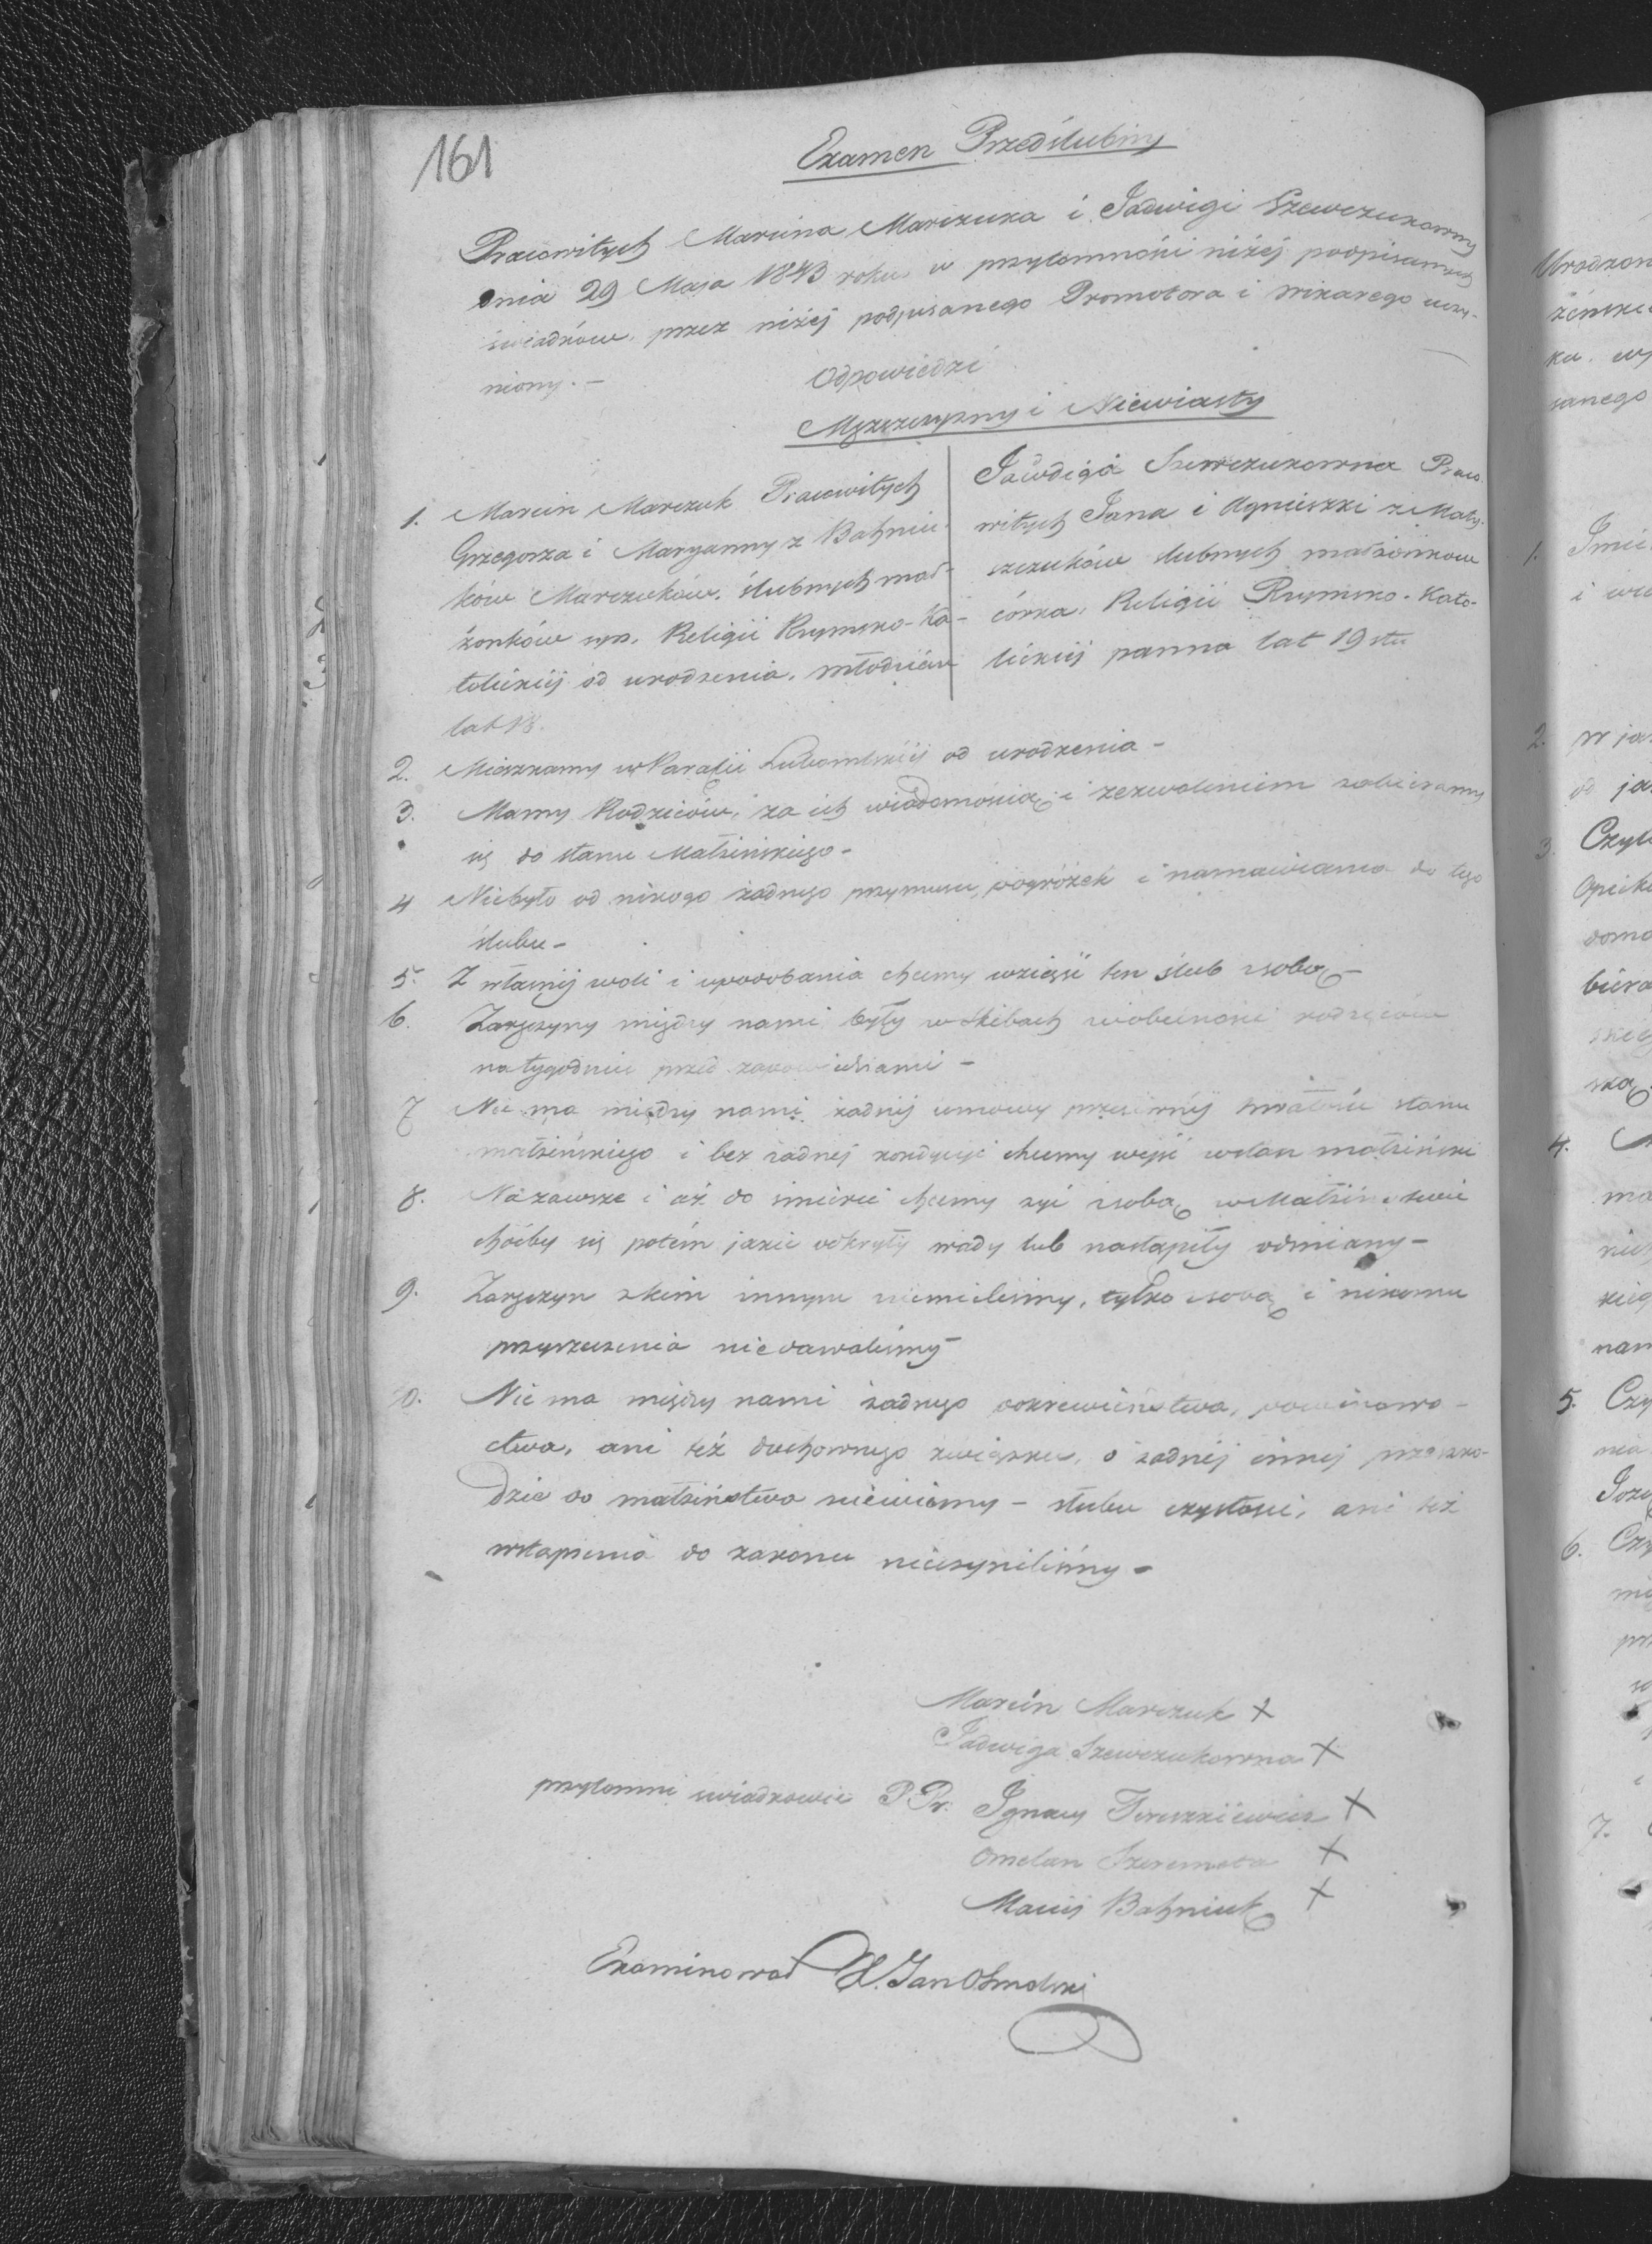 161
Examen Przedślubny
Pracowitych Marcina Marczuka i Jadwigi Szewczukowny
dnia 29 Maja 1843 roku w przytomności niżej podpisanych
świadków, przez niżej podpisanego Promotora i wikarego uczy-
niony. —
Odpowiedzi
Mężczyzny i Niewiasty
1. Marcin Marczuk Pracowitych
Grzegorza i Maryanny z Bahniu-
ków Marczuków. ślubnych mał-
żonków syn. Religii Rzymsko-Ka-
tolickiej od urodzenia. młodzian
lat
Jawdiga Szewczukowna Praco
witych Jana i Agnieszki z Maty-
szczuków slubnych małżonkow
córka. Religii Rzymsko-Kato-
lickiej panna lat 19stu
2. Mieszkamy w Parafii od urodzenia -
3. Mamy Rodziców, za ich wiadomością i zezwoleniem zabieramy
się do stanu Małżeńskiego -
4 Niebyło od nikogo żadnego przymusu, pogróżek i namawiania do tego
ślubu -
5. Z własnej woli i upodobania chcemy wziąść ten ślub z sobą -
6. Zaręczyny między nami były w Skibach w obecności rodziców
na tygodniu przed zapowiedziami -
7 Nie ma między nami żadnej umowy przeciwnej stanu
małżeńskiego i bez żadnej kondycyi chcemy wejść w stan małżeński
8. Na zawsze i aż do śmierci chcemy żyć z sobą w Małżeństwie
choćby się potém jakie odkryły wady lub nastąpiły odmiany -
9. Zaręczyn z kim innym niemieliśmy, tylko z sobą i nikomu
przyrzeczenia niedawaliśmy -
10. Nie ma między nami żadnego pokrewieństwa, powinowa-
ctwa, ani też duchownego związku, o żadnéj innej przeszko-
dzie do małżeństwa niewiemy - ślubu czystości, ani też
wstąpienia do zakonu nieczyniliśmy -
Marcin Marczuk X
Jadwiga Szewczukowna X
przytomni świadkowie P.Pr. Ignacy Tereszkiewicz X
Omelan Szeremeta X
Maciej Bahniuk X
Examinował X. Jan